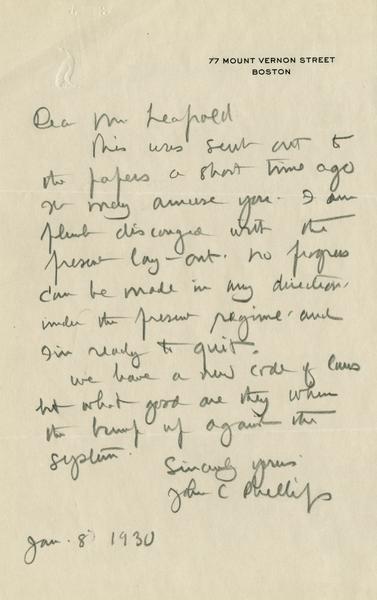 77 MOUNT VERNON STREET
BOSTON
Dear Mr Leopold
This was sent out to
the papers a short time ago
It may amuse you. I am
plumb discouraged with the
present lay-out. No progress
can be made in any direction
under the present regime and
I'm ready to quit.
We have a new code of laws
but what good are they when
they bump up against the
system.
Sincerely yours
John C Phillips
Jan. 8 1930